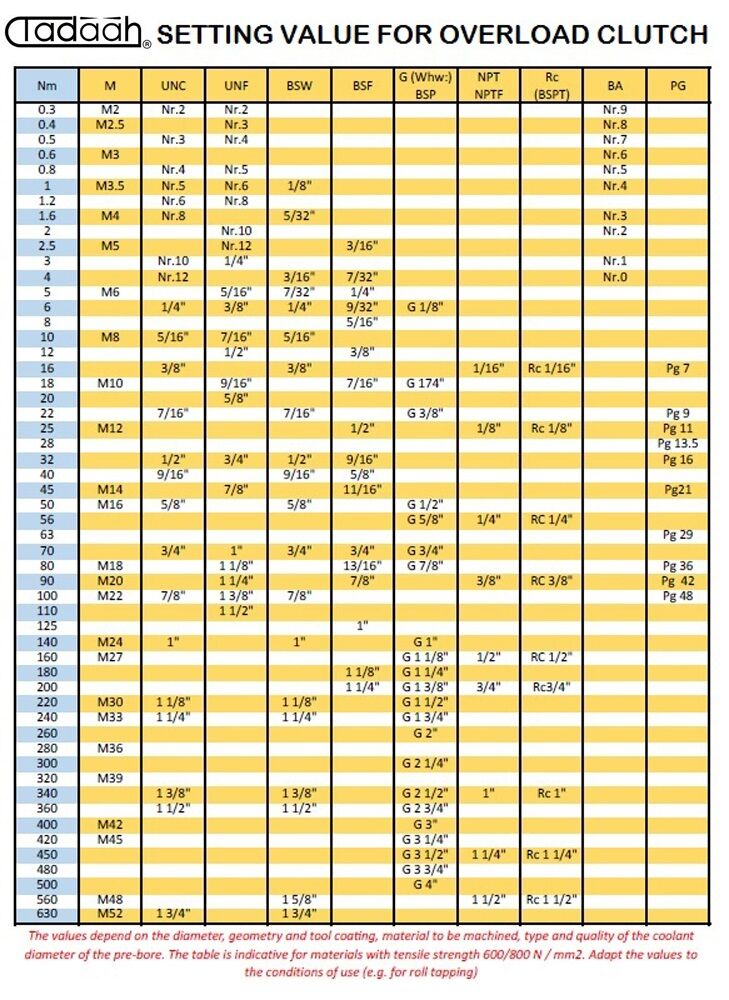 Tadaah® SETTING VALUE FOR OVERLOAD CLUTCH
Nm M UNC UNF BSW BSF G (Whw:) BSP NPT NPTF Rc (BSPT) BA PG
0.3 M2 Nr.2 Nr.2 Nr.9
0.4 M2.5 Nr.3 Nr.8
0.5 Nr.3 Nr.4 Nr.7
0.6 M3 Nr.6
0.8 Nr.4 Nr.5 Nr.5
1 M3.5 Nr.5 Nr.6 1/8" Nr.4
1.2 Nr.6 Nr.8
1.6 M4 Nr.8 5/32" Nr.3
2 Nr.10 Nr.2
2.5 M5 Nr.12 3/16"
3 Nr.10 1/4" Nr.1
4 Nr.12 3/16" 7/32" Nr.0
5 M6 5/16" 7/32" 1/4"
6 1/4" 3/8" 1/4" 9/32" G 1/8"
8 5/16"
10 M8 5/16" 7/16" 5/16"
12 1/2" 3/8"
16 3/8" 3/8" 1/16" Rc 1/16" Pg 7
18 M10 9/16" 7/16" G 174"
20 5/8"
22 7/16" 7/16" G 3/8" Pg 9
25 M12 1/2" 1/8" Rc 1/8" Pg 11
28 Pg 13.5
32 1/2" 3/4" 1/2" 9/16" Pg 16
40 9/16" 9/16" 5/8"
45 M14 7/8" 11/16" Pg21
50 M16 5/8" 5/8" G 1/2"
56 G 5/8" 1/4" RC 1/4"
63 Pg 29
70 3/4" 1" 3/4" 3/4" G 3/4"
80 M18 1 1/8" 13/16" G 7/8" Pg 36
90 M20 1 1/4" 7/8" 3/8" RC 3/8" Pg 42
100 M22 7/8" 1 3/8" 7/8" Pg 48
110 1 1/2"
125 1"
140 M24 1" 1" G 1"
160 M27 G 1 1/8" 1/2" RC 1/2"
180 1 1/8" G 1 1/4"
200 1 1/4" G 1 3/8" 3/4" Rc3/4"
220 M30 1 1/8" 1 1/8" G 1 1/2"
240 M33 1 1/4" 1 1/4" G 1 3/4"
260 G 2"
280 M36
300 G 2 1/4"
320 M39
340 1 3/8" 1 3/8" G 2 1/2" 1" Rc 1"
360 1 1/2" 1 1/2" G 2 3/4"
400 M42 G 3"
420 M45 G 3 1/4"
450 G 3 1/2" 1 1/4" Rc 1 1/4"
480 G 3 3/4"
500 G 4"
560 M48 1 5/8" 1 1/2" Rc 1 1/2"
630 M52 1 3/4" 1 3/4"
The values depend on the diameter, geometry and tool coating, material to be machined, type and quality of the coolant
diameter of the pre-bore. The table is indicative for materials with tensile strength 600/800 N / mm2. Adapt the values to
the conditions of use (e.g. for roll tapping)